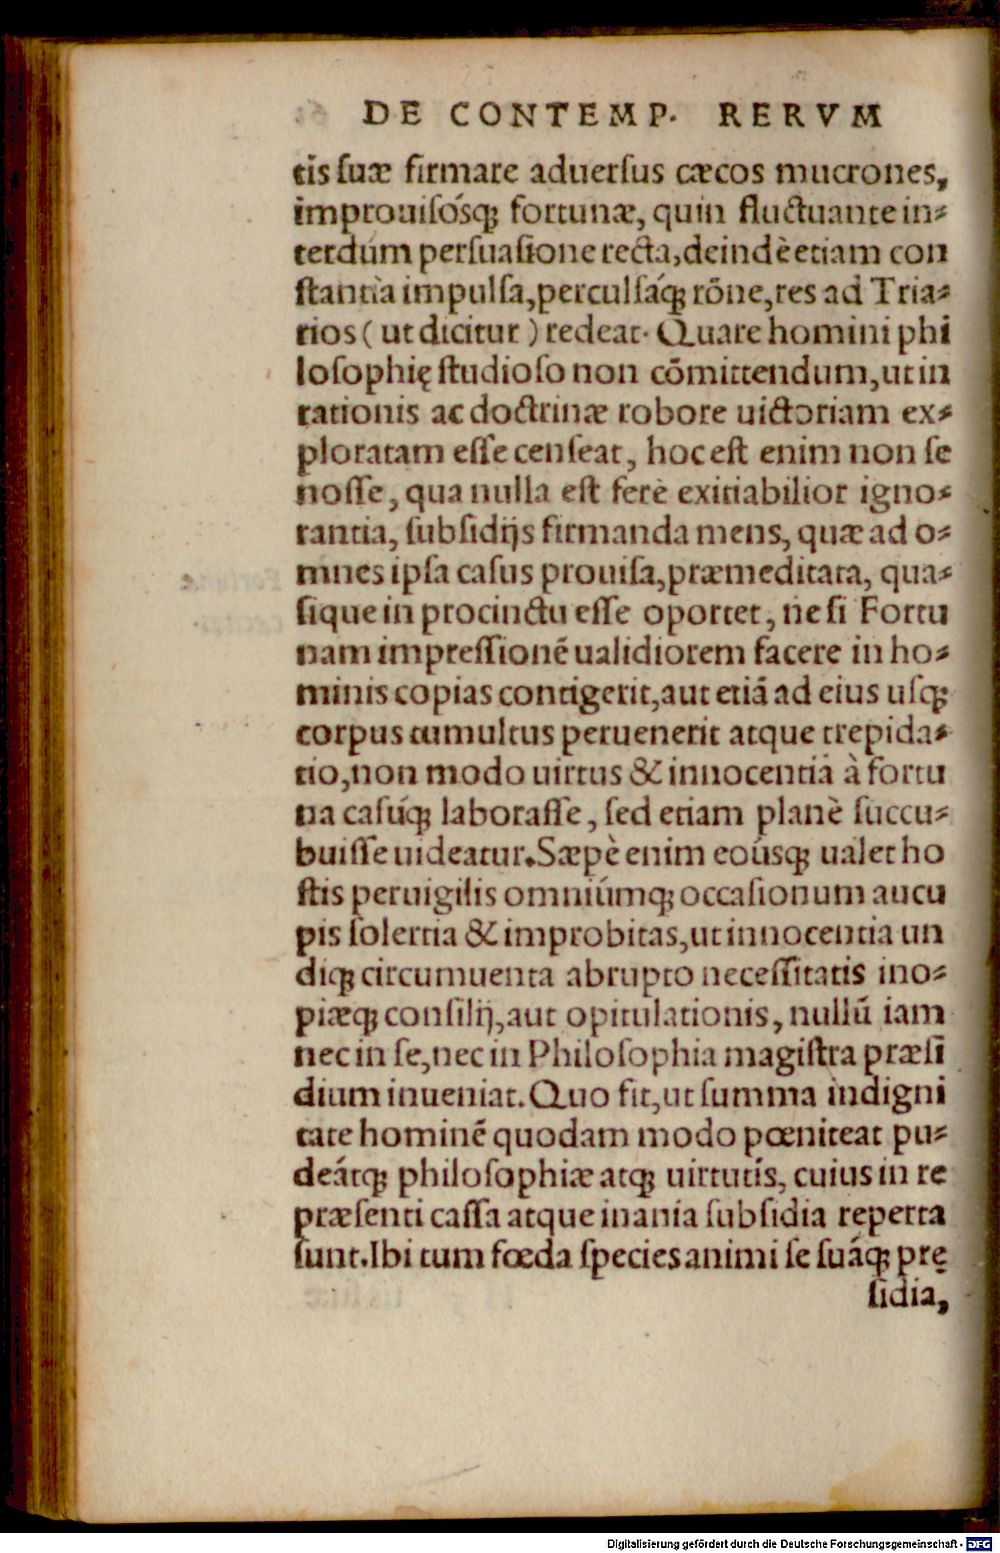 DE CONTEMP. RERVM
tis ſuæ firmare aduerſus cæcos mucrones,
improuiſósq; fortunæ, quin fluctuante in-
terdum perſuaſione recta, deindè etiam con
ſtantia impulſa, perculſáq; rōne, res ad Tria-
rios (ut dicitur) redeat. Quare homini phi
loſophię ſtudioſo non cōmittendum, ut in
rationis ac doctrinæ robore uictoriam ex-
ploratam eſſe cenſeat, hoc eſt enim non ſe
noſſe, qua nulla eſt ferè exitiabilior igno-
rantia, ſubſidijs firmanda mens, quæ ad o-
mnes ipſa caſus prouiſa, præmeditata, qua-
ſique in procinctu eſſe oportet, ne ſi Fortu
nam impreſſionē ualidiorem facere in ho-
minis copias contigerit, aut etiā ad eius uſq;
corpus tumultus peruenerit atque trepida-
tio, non modo uirtus & innocentia à fortu
na caſúq; laboraſſe, ſed etiam planè ſuccu-
buiſſe uideatur. Sæpè enim eoúsq; ualet ho
ſtis peruigilis omniúmq; occaſionum aucu
pis ſolertia & improbitas, ut innocentia un
diq; circumuenta abrupto neceſſitatis ino-
piæq; conſilij, aut opitulationis, nullū iam
nec in ſe, nec in Philoſophia magiſtra præſi
dium inueniat. Quo fit, ut ſumma indigni
tate hominē quodam modo pœniteat pu-
deátq; philoſophiæ atq; uirtutis, cuius in re
præſenti caſſa atque inania ſubſidia reperta
ſunt. Ibi tum fœda ſpecies animi ſe ſuáq; prę
ſidia,
Digitalisierung gefördert durch die Deutsche Forschungsgemeinschaft - DFG